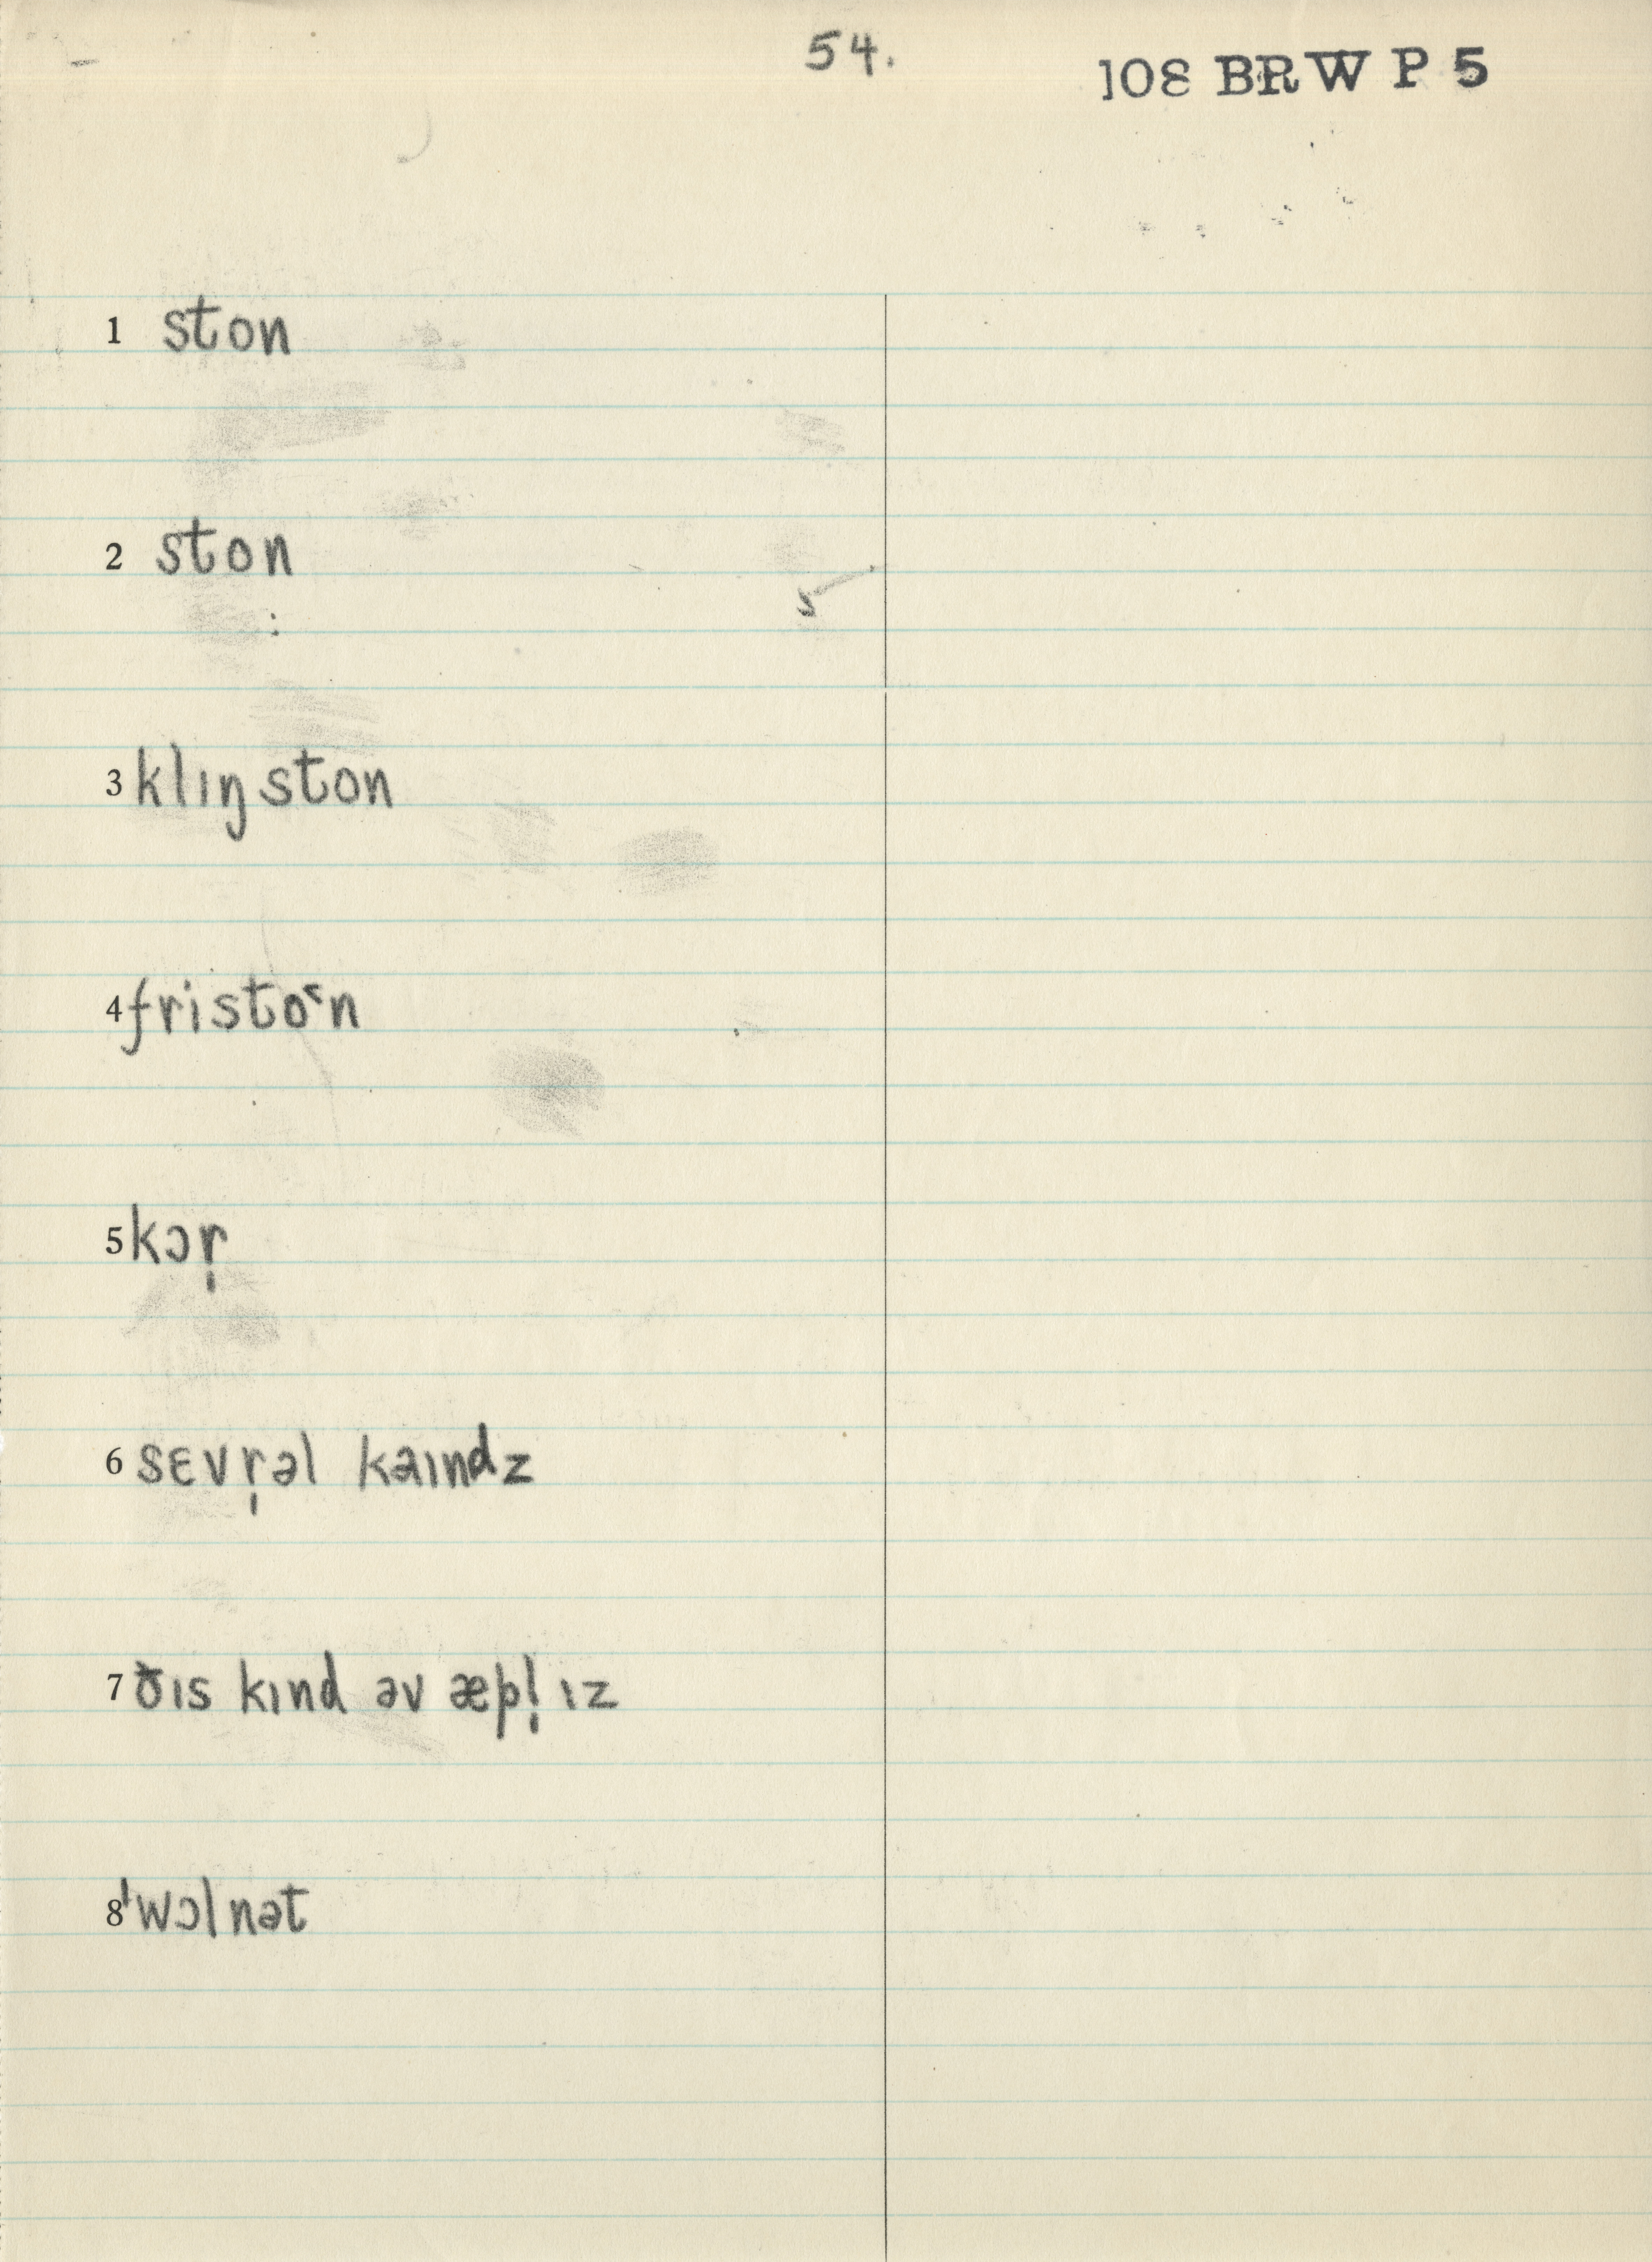 54.
108 BRW P 5
1 ston
2 ston
3 klɪŋ ston
4 fristo˂n
5 kɔr̩
6 sɛvr̩əl kaɪndz
7 ðɪs kɪnd əv æpl̩ ɪz
8 ˈwɔlnət